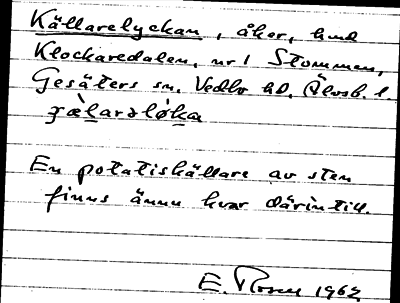 Källarelyckan, åker, hmd
Klockaredalen, nr 1 Stommen,
Gesäters sn, Vedbo hd, Älvsb. l.
En potatiskällare av sten
finns ännu kvar därintill.
E. Rosen 1962